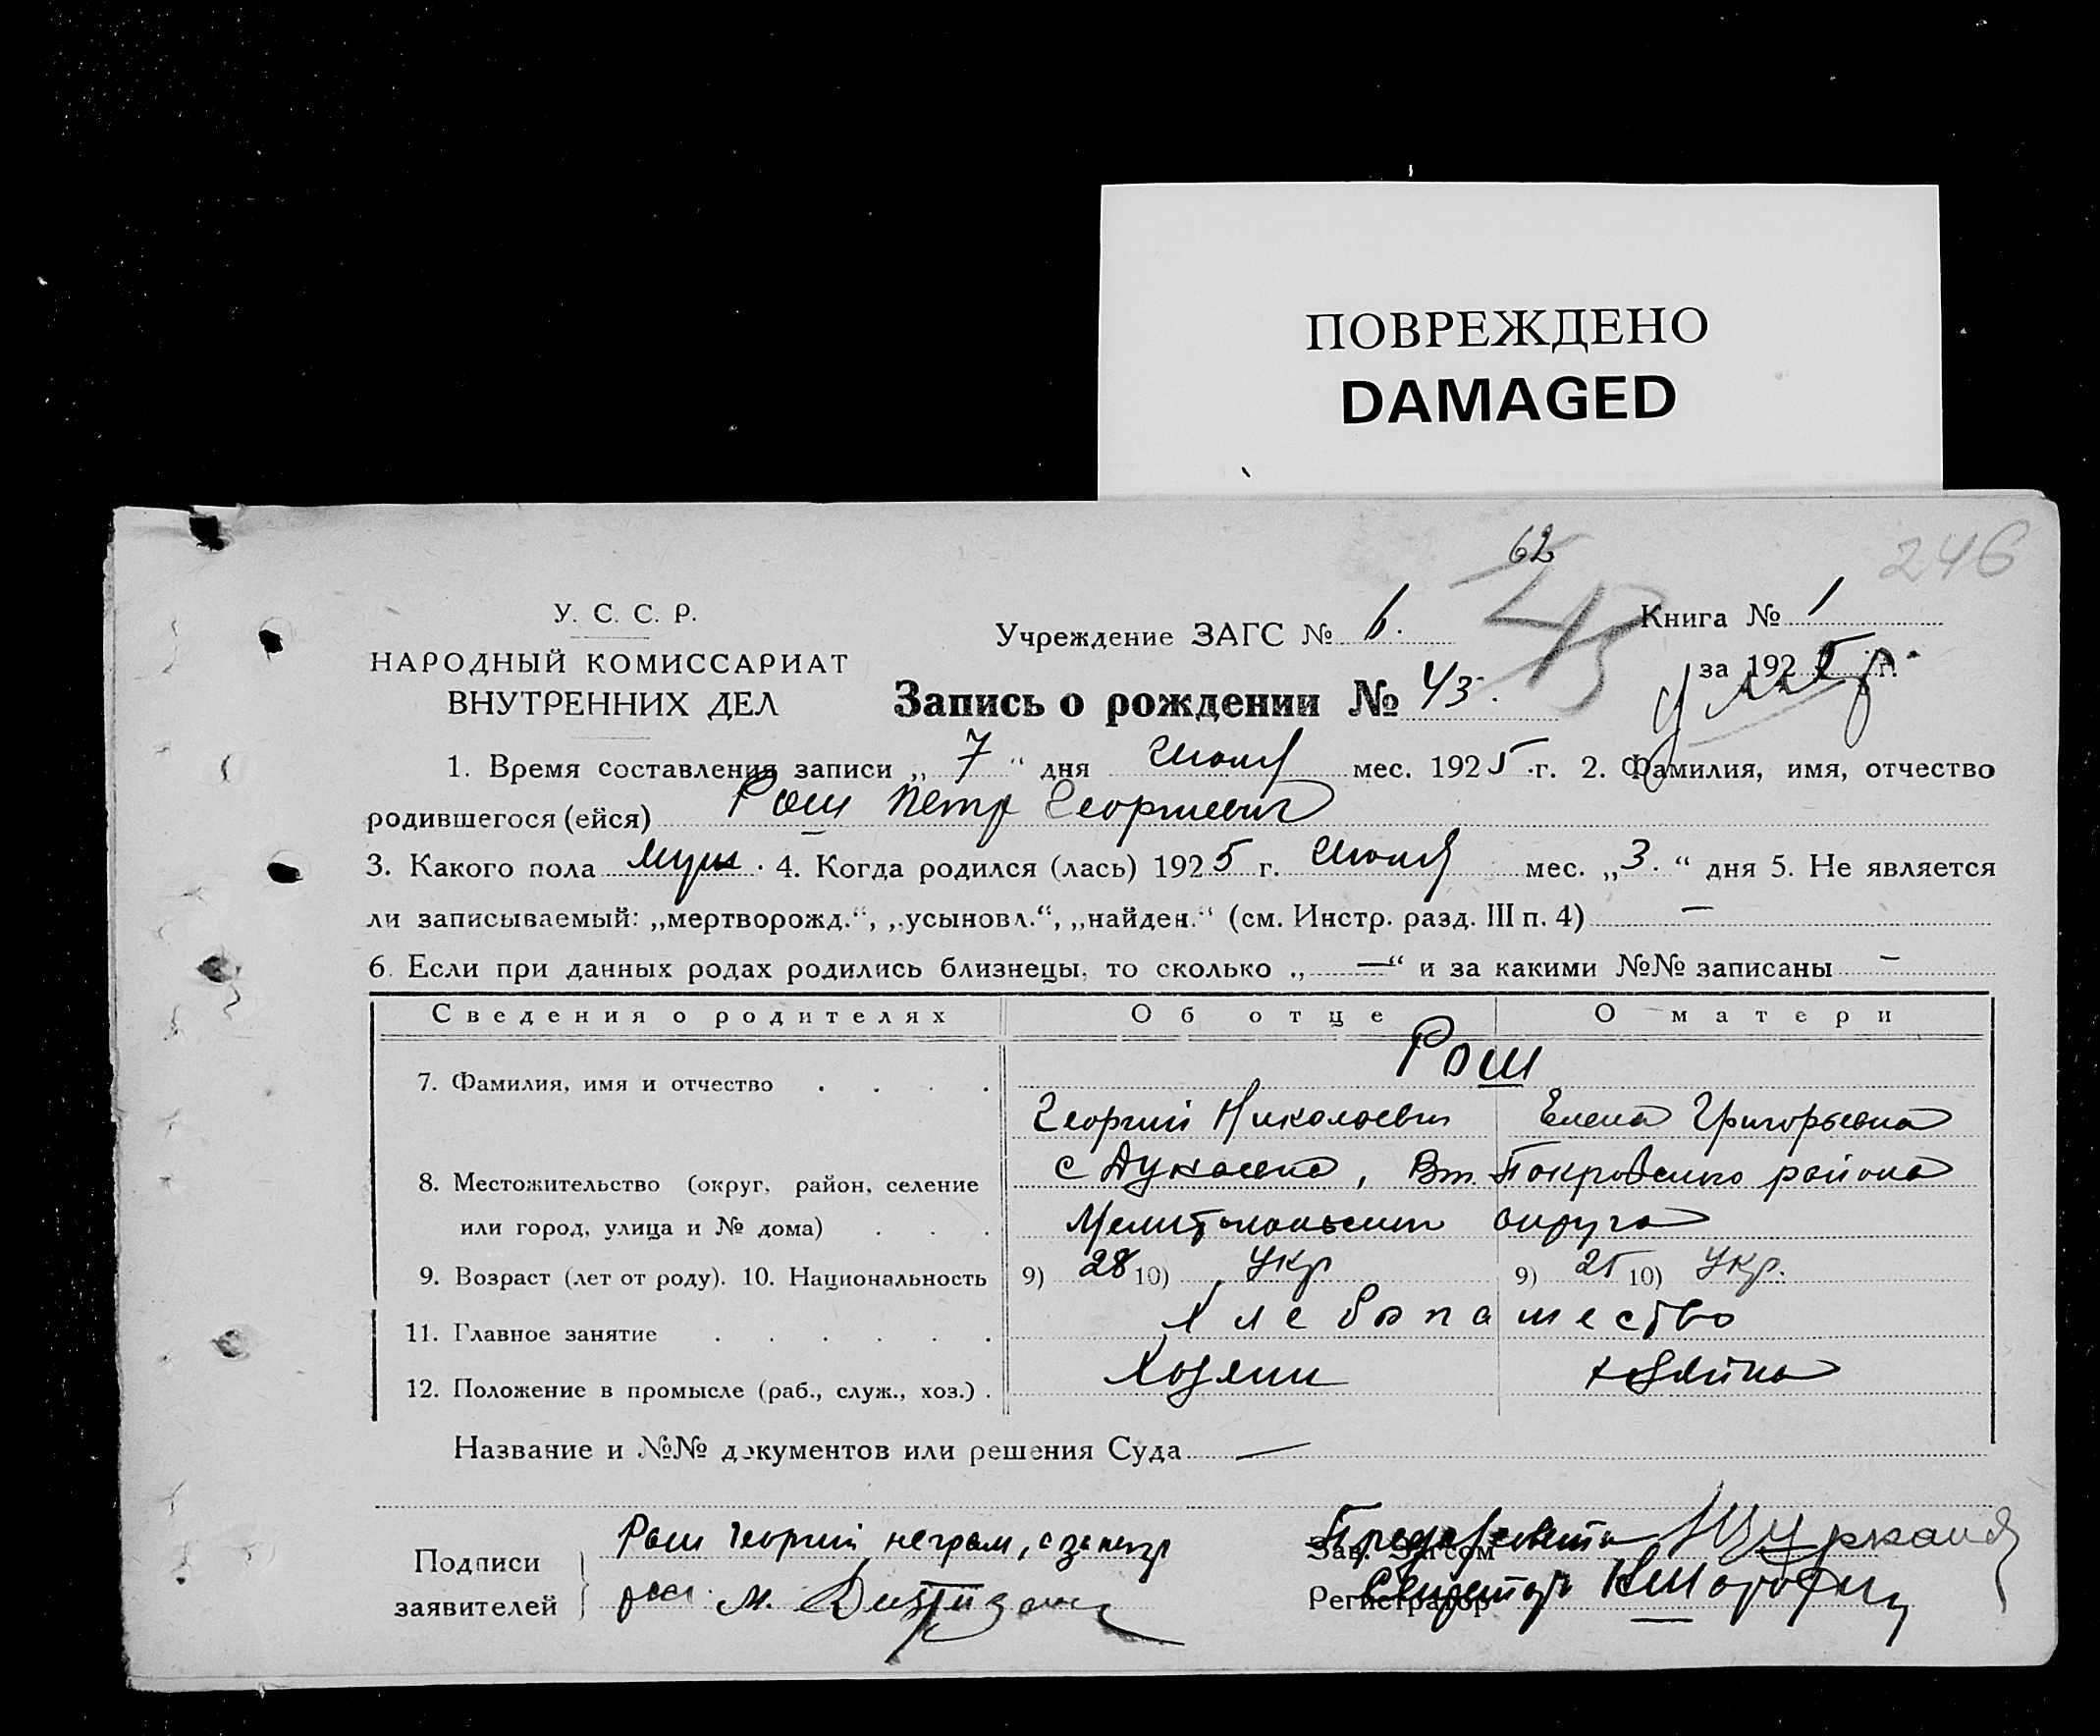 ПОВРЕЖДЕНО
DAMAGED
62
246
43
У. С. С. Р.
НАРОДНЫЙ КОМИССАРИАТ
ВНУТРЕННИХ ДЕЛ
Учреждение ЗАГС № 6.
Книга № 1
за 1925 г.
умер
Запись о рождении № 43.
1. Время составления записи „ 7 “ дня Июля мес. 1925 г. 2. Фамилия, имя, отчество
родившегося (ейся) Рош Петр Георгиевич
3. Какого пола муж. 4. Когда родился (лась) 1925 г. Июля мес. „3.“ дня 5. Не является
ли записываемый: „мертворожд.“, „усыновл.“, „найден.“ (см. Инстр. разд. III п. 4) —
6. Если при данных родах родились близнецы, то сколько „—“ и за какими №№ записаны —
Сведения о родителях Об отце О матери
Рош
7. Фамилия, имя и отчество . . . .
Георгий Николаевич Елена Григорьевна
8. Местожительство (округ, район, селение с , Вт. Покровского района
или город, улица и № дома) . . . Мелитопольского округа
9. Возраст (лет от роду). 10. Национальность 9) 28 10) Укр 9) 25 10) Укр.
11. Главное занятие . . . . . . Хлебопашество
12. Положение в промысле (раб., служ., хоз.) . Хозяин хозяйка
Название и №№ документов или решения Суда —
Подписи заявителей
Рош Георгий неграм, а за негр
рос. М.
Зав. Загсом
Регистратор Секретарь